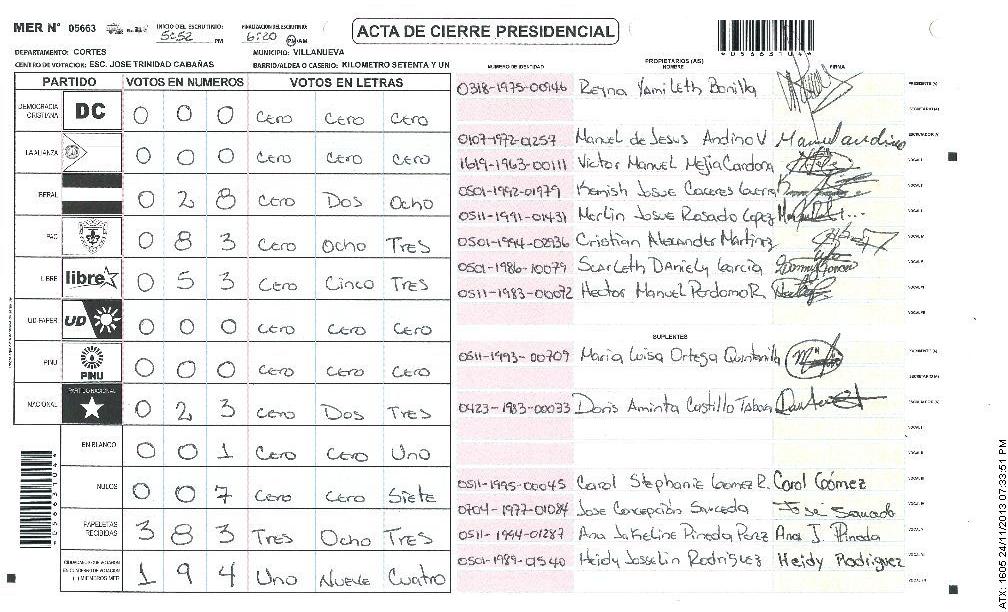 MER N° 05663 INICIO DEL ESCRUTINIO: 5:52 PM FINALIZACION DEL ESCRUTINIO: 6:20 PM/AM ACTA DE CIERRE PRESIDENCIAL
056631044
DEPARTAMENTO: CORTES MUNICIPIO: VILLANUEVA
CENTRO DE VOTACION: ESC. JOSE TRINIDAD CABAÑAS BARRIO/ALDEA O CASERIO: KILOMETRO SETENTA Y UN
PARTIDO VOTOS EN NUMEROS VOTOS EN LETRAS
DEMOCRACIA CRISTIANA DC 0 0 0 Cero Cero Cero
LA ALIANZA 0 0 0 Cero Cero Cero
BERAL 0 2 8 Cero Dos Ocho
PAC 0 8 3 Cero Ocho Tres
LIBRE libre 0 5 3 Cero Cinco Tres
UD-FAPER UD 0 0 0 Cero Cero Cero
PINU PINU 0 0 0 Cero Cero Cero
NACIONAL PARTIDO NACIONAL 0 2 3 Cero Dos Tres
EN BLANCO 0 0 1 Cero Cero Uno
NULOS 0 0 7 Cero Cero Siete
PAPELETAS RECIBIDAS 3 8 3 Tres Ocho Tres
CIUDADANOS QUE VOTARON EN CUADERNO DE VOTACION (+) MIEMBROS MER 1 9 4 Uno Nueve Cuatro
PROPIETARIOS (AS)
NUMERO DE IDENTIDAD NOMBRE FIRMA
0318-1975-00146 Reyna Yamileth Bonilla PRESIDENTE (A)
SECRETARIO (A)
0107-1972-01257 Manuel de Jesus Andino V Manuel andino ESCRUTADOR (A)
1619-1963-00111 Victor Manuel Mejia Cardona VOCAL I
0501-1992-01979 Kenish Josue Caceres Guerra
0511-1991-01431 Merlin Josue Rosado Lopez
0501-1994-02936 Cristian Alexander Martinez
0501-1986-10079 Scarleth Daniely Garcia
0511-1983-00072 Hector Manuel Perdomo R.
SUPLENTES
0511-1993-00709 Maria Luisa Ortega Quintanilla PRESIDENTE (A)
SECRETARIO (A)
0423-1983-00033 Doris Aminta Castillo ESCRUTADOR (A)
0511-1995-00045 Carol Stephanie Gomez R. Carol Gómez
0704-1977-01084 Jose Concepción Sauceda Jose Sauceda
0511-1994-01287 Ana Jakeline Pineda Perez Ana J. Pineda
0501-1989-01540 Heidy Josselin Rodriguez Heidy Rodriguez
056631044
ATX: 1605 24/11/2013 07:33:51 PM